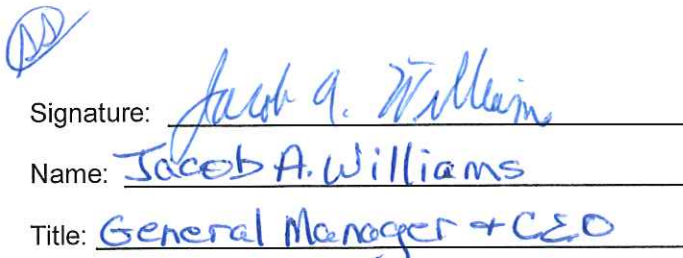 Signature: Jacob A. Williams
Name: Jacob A. Williams
Title: General Manager + CEO